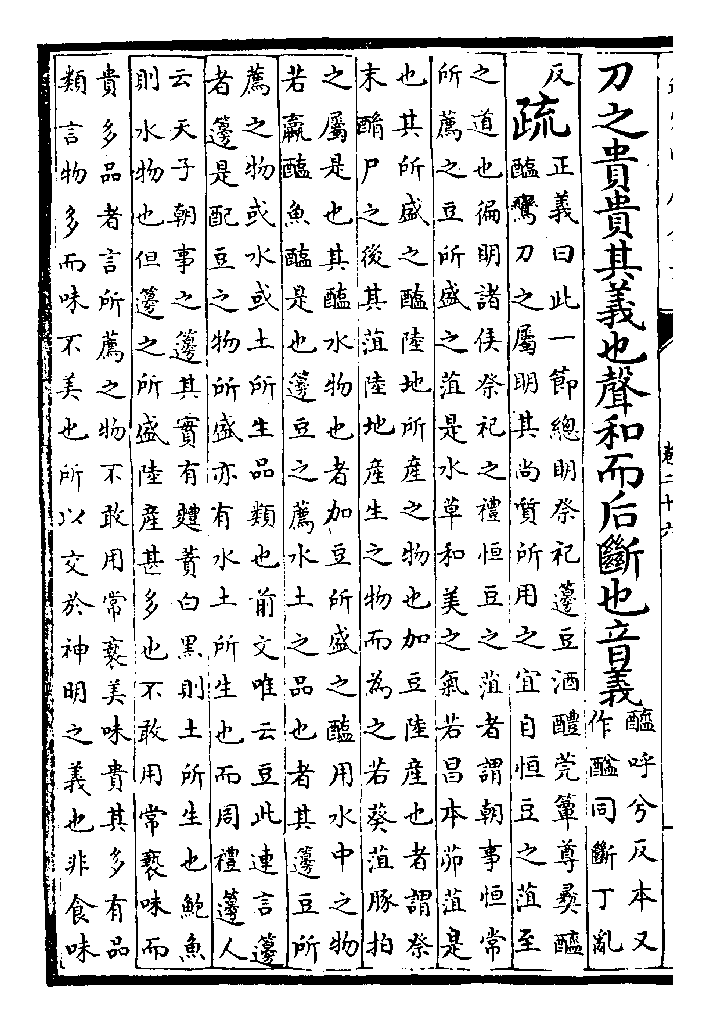 刀之貴貴其義也聲和而后斷也音義
醯呼兮反本又
作醯同斷丁亂
反
疏
正義曰此一節總明祭祀籩豆酒醴莞簟尊彝醯
醢鸞刀之屬明其尚質所用之宜自恒豆之菹至
之道也徧明諸侯祭祀之禮恒豆之菹者謂朝事恒常
所薦之豆所盛之菹是水草和美之氣若昌本茆菹是
也其所盛之醢陸地所產之物也加豆陸產也者謂祭
末酳尸之後其菹陸地產生之物而為之若葵菹豚拍
之屬是也其醢水物也者加豆所盛之醢用水中之物
若蠃醢魚醢是也籩豆之薦水土之品也者其籩豆所
薦之物或水或土所生品類也前文唯云豆此連言籩
者籩是配豆之物所盛亦有水土所生也而周禮籩人
云天子朝事之籩其實有麷蕡白黑則土所生也鮑魚
則水物也但籩之所盛陸產甚多也不敢用常褻味而
貴多品者言所薦之物不敢用常褻美味貴其多有品
類言物多而味不美也所以交於神明之義也非食味
卷二十六